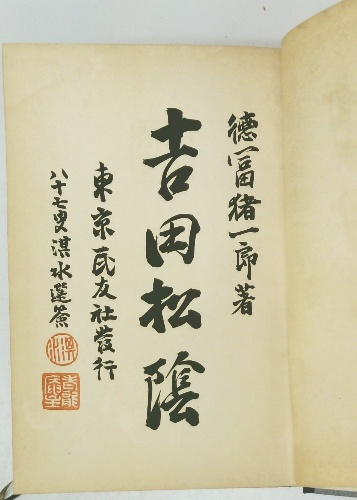 德富猪一郎著
吉田松陰
東京民友社發行
八十七叟淇水蓬簽